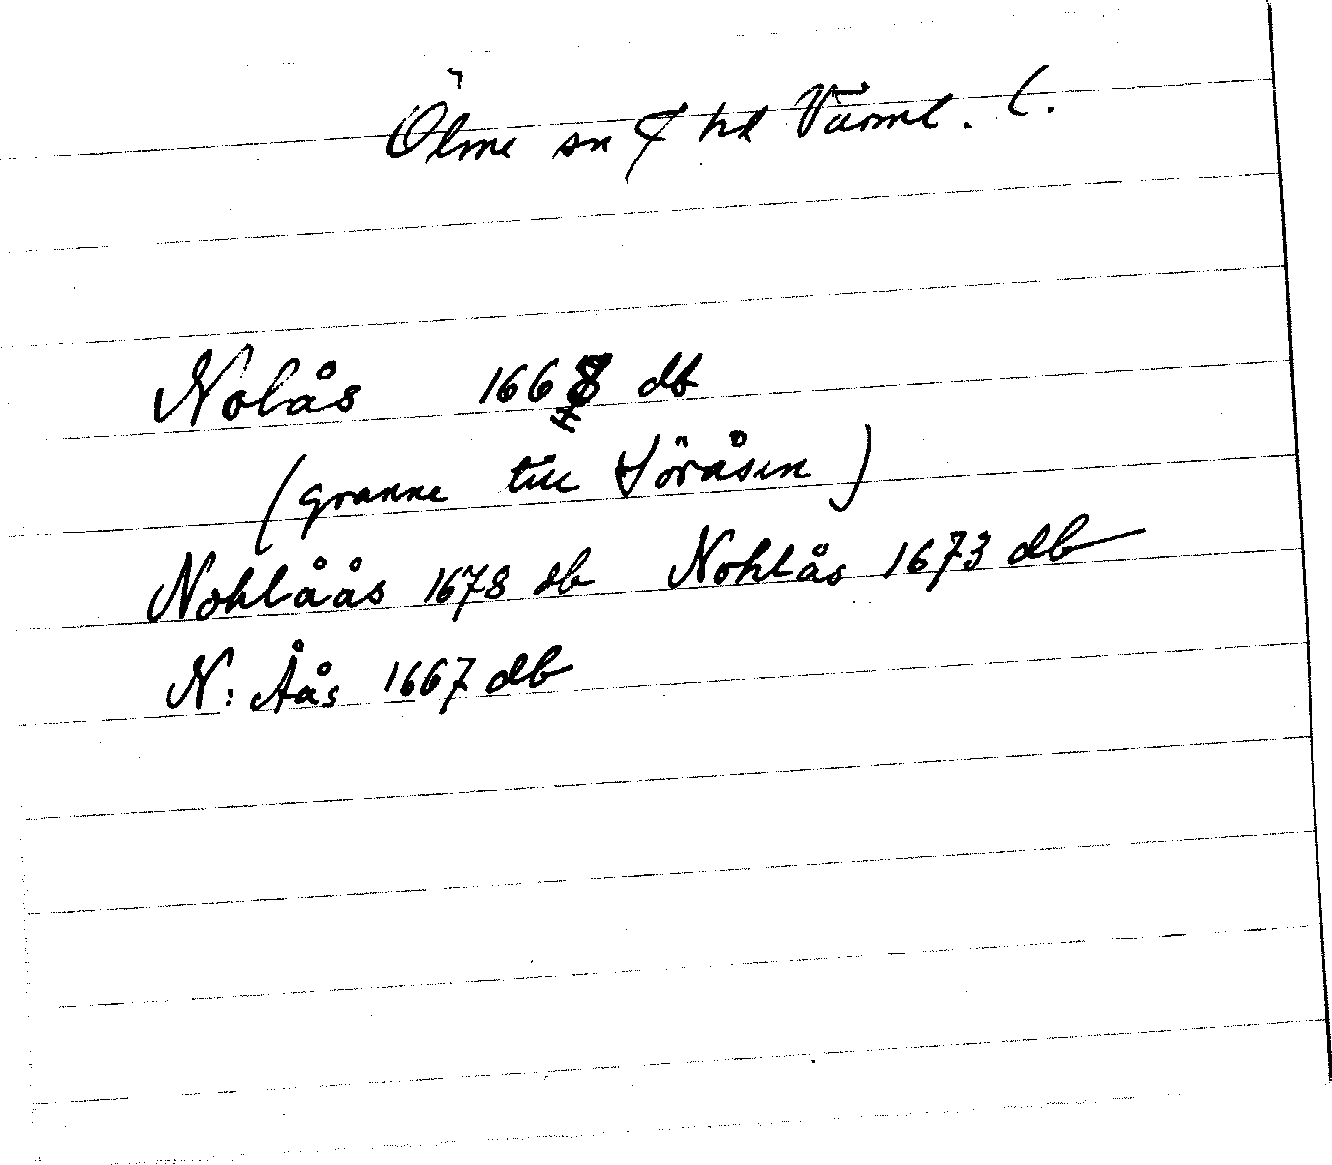 Ölme sn & hd Värml. l.
Nolås 1668 db
(granne till Söråsen)
Nohlåås 1678 db Nohlås 1673 db
N: Åås 1667 db